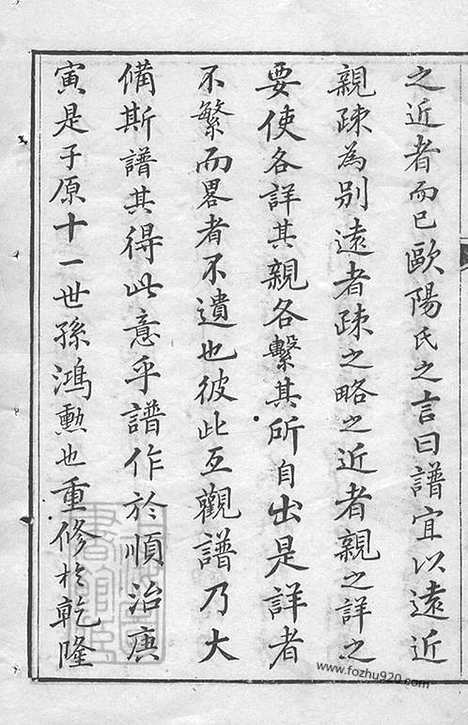 之近者而已歐陽氏之言曰譜宜以遠近
親疎為别遠者疎之略之近者親之詳之
要使各詳其親各繫其所自出是詳者
不繁而畧者不遺也彼此互觀譜乃大
備斯譜其得此意乎譜作於順治庚
寅是子原十一世孫鴻勲也重修於乾隆
www.fozhu920.com